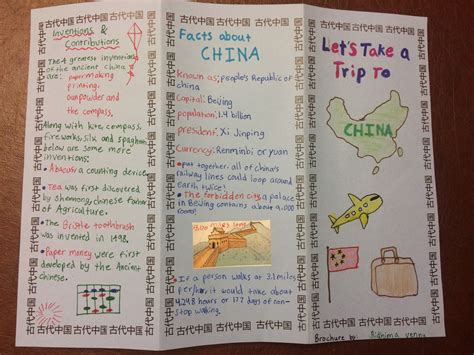 Inventions &
Contributions
The 4 greatest inventions
of the ancient China
are: papermaking
printing,
gunpowder and
the compass.
Along with kite, compass,
fireworks, silk and
below are some more
inventions:
Abacus: a counting device
Tea was first discovered
by Shennong, chinese father
of Agriculture.
The Bristle toothbrush
was invented in 1498.
Paper money were first
developed by the Ancient
chinese.
Facts about
CHINA
Known as; People's Republic of
china
Capital: Beijing
population: 1.4 billion
president: Xi Jinping
Currency: Renminbi or yuan
put together, all of china's
railway lines could loop around
earth twice!
The forbidden city, a palace
in Beijing contains about 9,000
rooms!
If a person walks at 3.1 miles
per/hr, it would take about
4248 hours or 177 days of non-
stop walking.
Let's Take a
Trip To
CHINA
Brochure by:
古代中国 古代中国 古代中国 古代中国 古代中国 古代中国